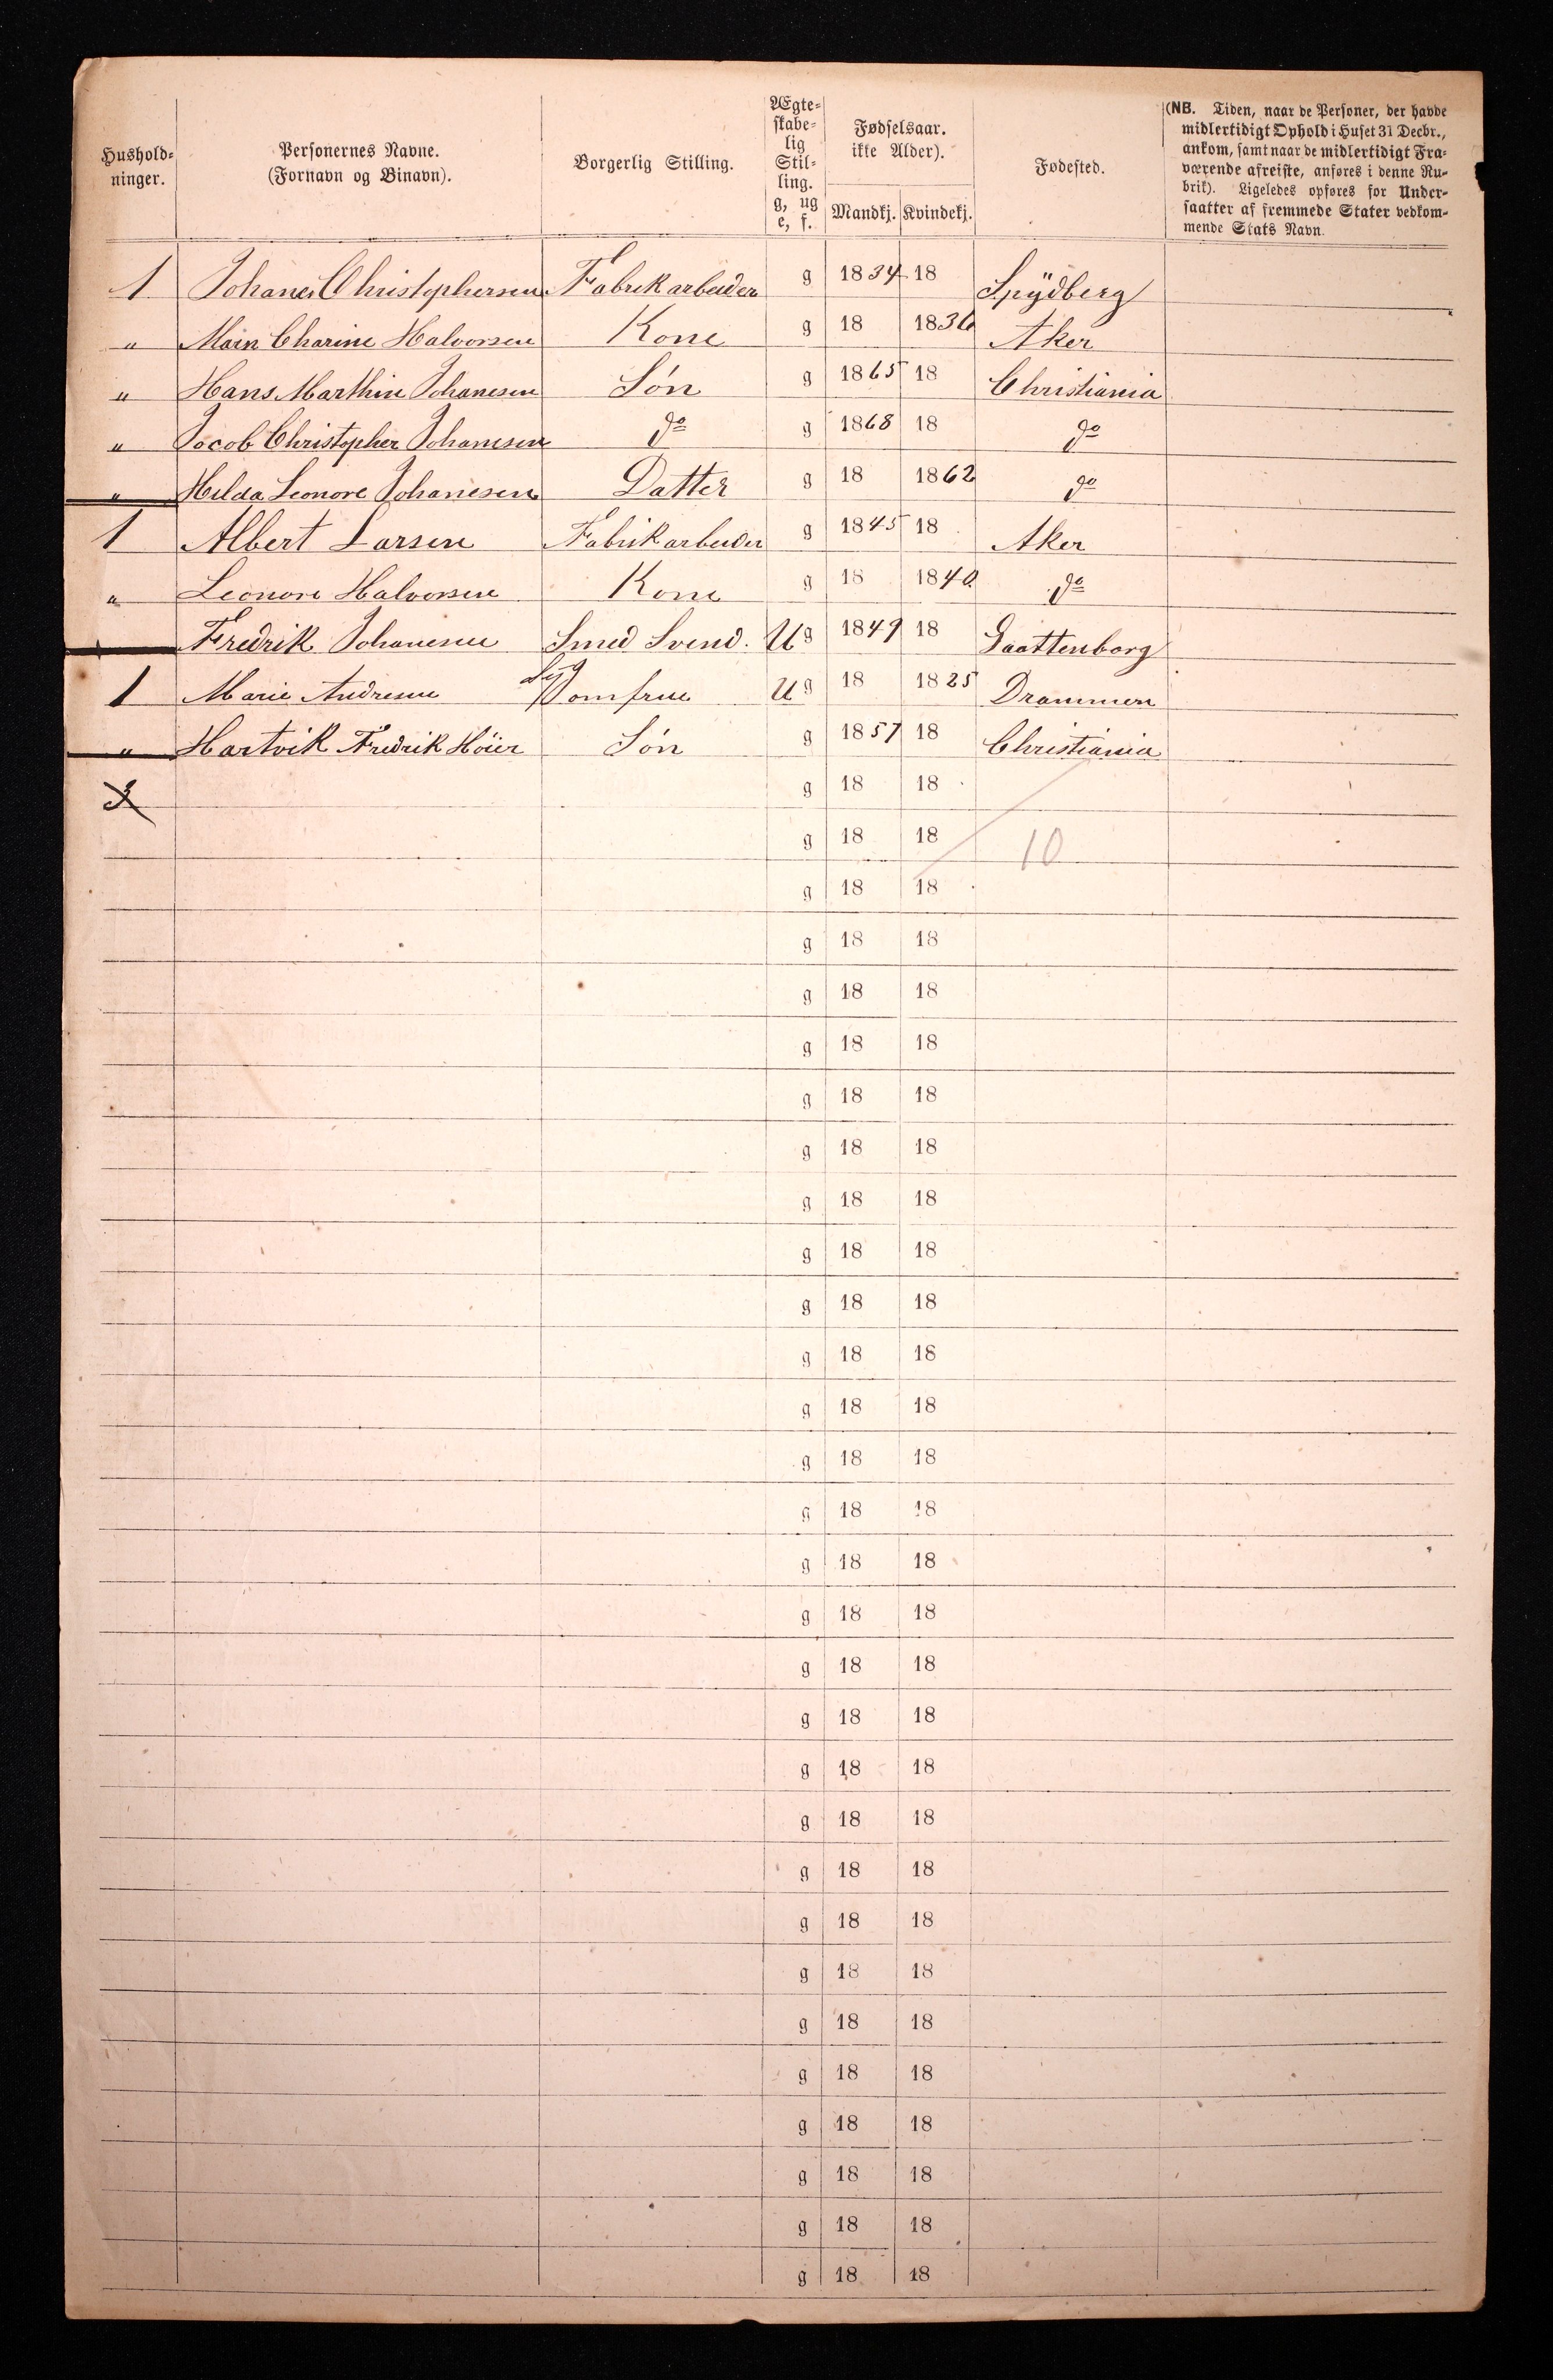 Hushold-ninger. | Personernes Navne. (Fornavn og Binavn). | Borgerlig Stilling. | Ægte-skabe-lig Stil-ling. g, ug e, f. | Fødselsaar. ikke Alder). Mandkj. Kvindekj. | Fødested. | (NB. Tiden, naar de Personer, der havde midlertidigt Ophold i Huset 31 Decbr., ankom, samt naar de midlertidigt Fra-værende afreiste, anføres i denne Ru-brik). Ligeledes opføres for Under-saatter af fremmede Stater vedkom-mende Stats Navn.
1 Johanes Christophersen Fabrikarbeider g 1834 18 Spÿdberg
" Main Charine Halvorsen Kone g 18 1836 Aker
" Hans Marthin Johanesen Søn g 1865 18 Christiania
" Jacob Christopher Johannesen do g 1868 18 do
" Hilda Leonore Johanesen Datter g 18 1862 do
1 Albert Larsen Fabrikarbeider g 1845 18 Aker
" Leonore Halvorsen Kone g 18 1840. do
Fredrik Johanesen Smed Svend. Ug 1849 18 Gaattenborg
1 Marie Andresen Syjomfrue Ug 18 1825 Drammen
" Hartvik Fredrik Høier Søn g 1857 18 Christiania
3 g 18 18
g 18 18 10
g 18 18
g 18 18
g 18 18
g 18 18
g 18 18
g 18 18
g 18 18
g 18 18
g 18 18
g 18 18
g 18 18
g 18 18
g 18 18
g 18 18
g 18 18
g 18 18
g 18 18
g 18 18
g 18 18
g 18 18
g 18 18
g 18 18
g 18 18
g 18 18
g 18 18
g 18 18
g 18 18
g 18 18